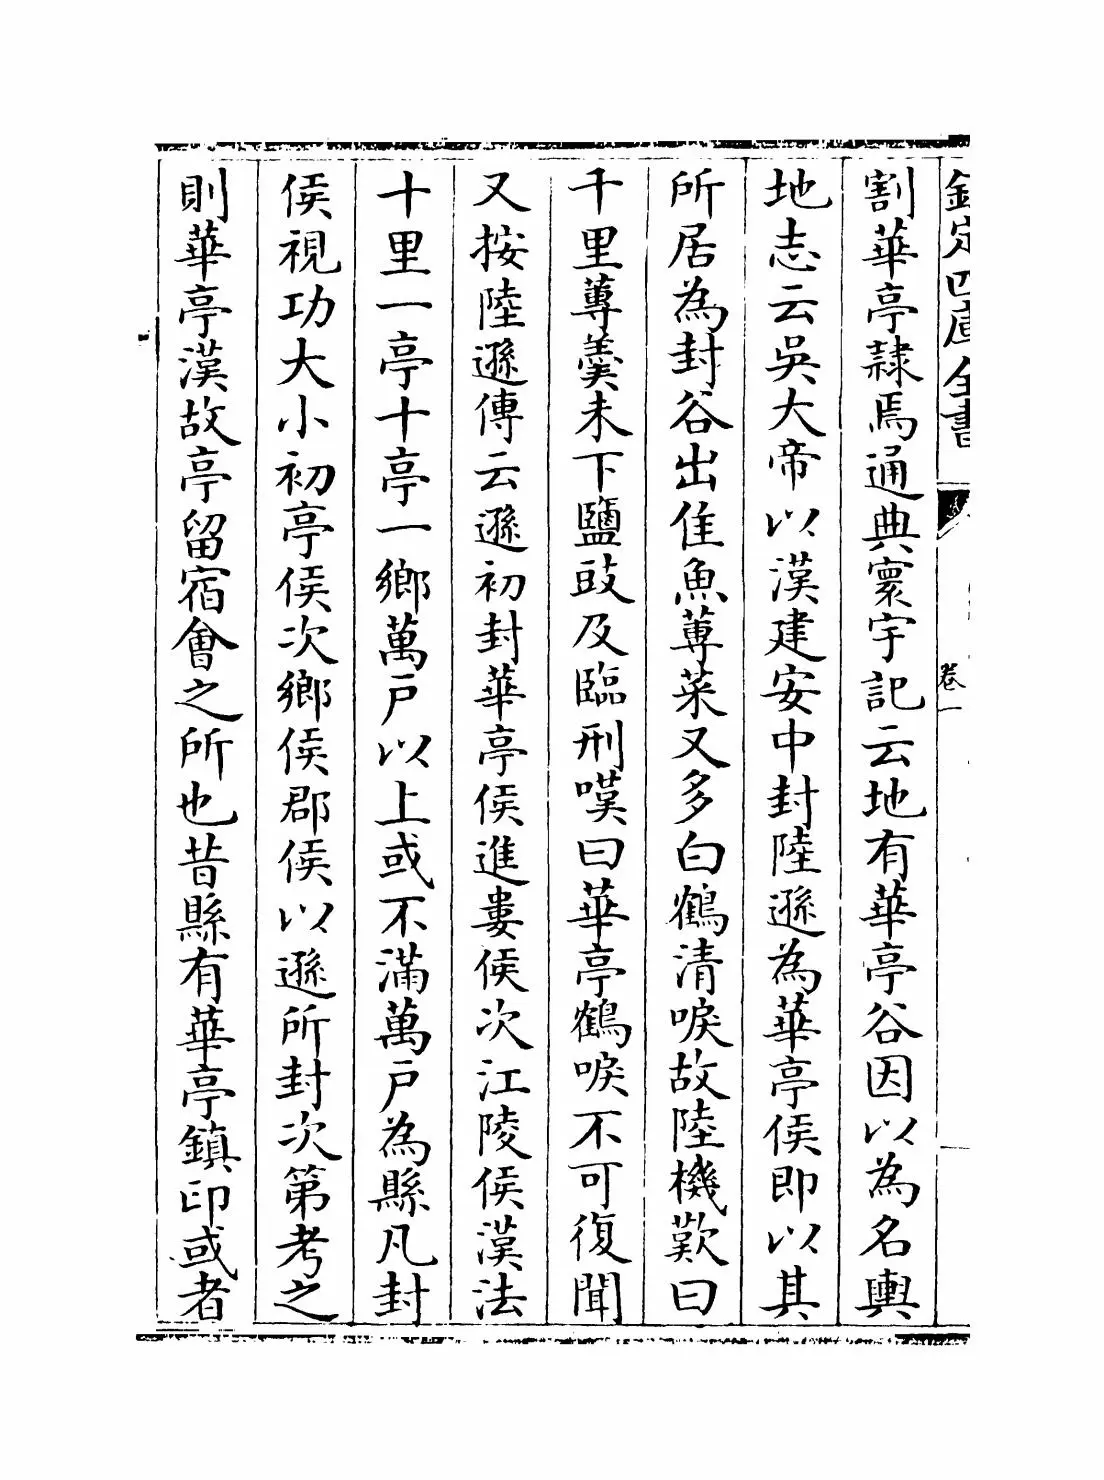 欽定四庫全書
卷一
割華亭隷焉通典寰宇記云地有華亭谷因以為名輿
地志云吳大帝以漢建安中封陸遜為華亭侯即以其
所居為封谷出佳魚蓴菜又多白鶴清唳故陸機歎曰
千里蓴羹未下鹽豉及臨刑嘆曰華亭鶴唳不可復聞
又按陸遜傳云遜初封華亭侯進婁侯次江陵侯漢法
十里一亭十亭一鄉萬戸以上或不滿萬戸為縣凡封
侯視功大小初亭侯次鄉侯郡侯以遜所封次第考之
則華亭漢故亭留宿會之所也昔縣有華亭鎮印或者